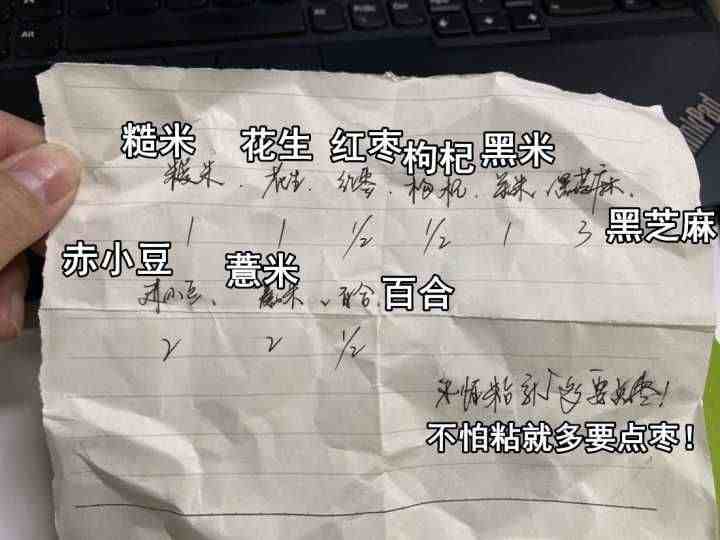 糙米 花生 红枣 枸杞 黑米
糙米、花生、红枣、枸杞、黑米、黑芝麻、
黑芝麻
1 1 1/2 1/2 1 3
赤小豆 薏米 百合
赤小豆、薏米、百合
2 2 1/2
不怕粘就多要点枣!
不怕粘就多要点枣!
ThinkPad